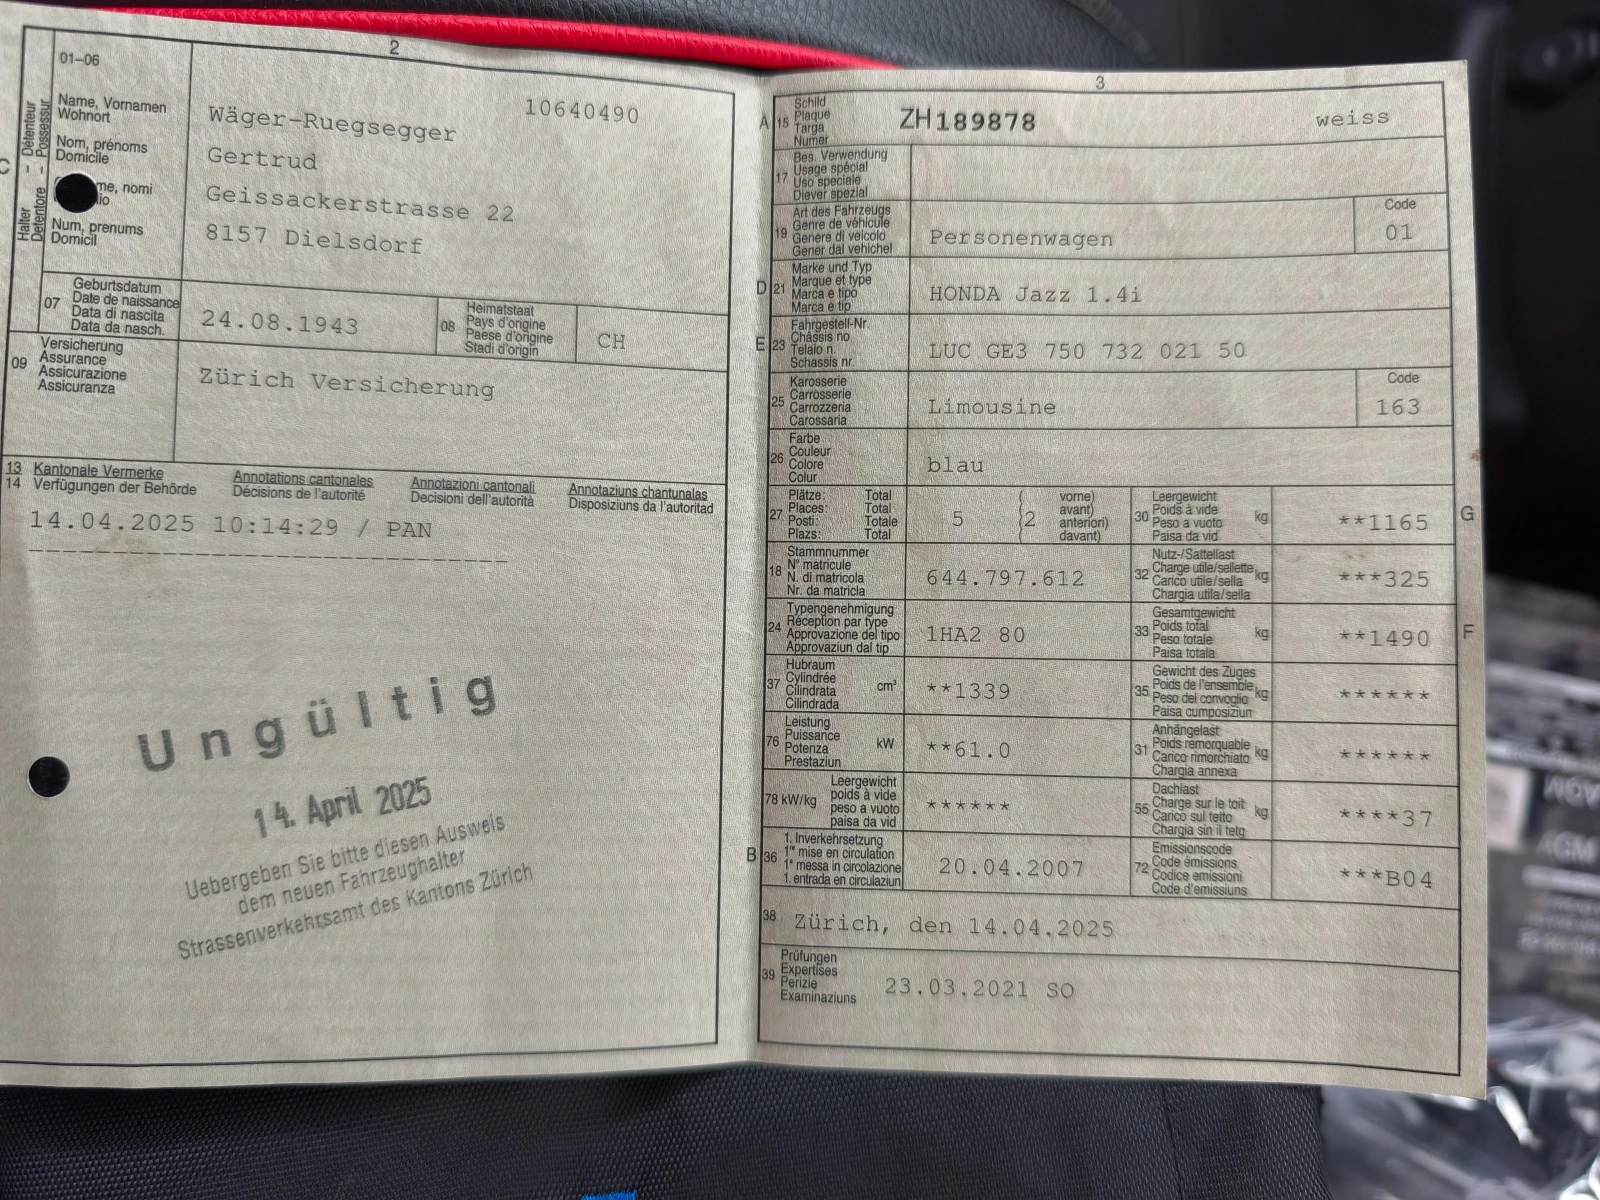 2
01–06
Name, Vornamen
Wohnort
Nom, prénoms
Domicile
me, nomi
Num, prenums
Domicil
C
Halter – Détenteur
Detentore – Possessur
10640490
Wäger-Ruegsegger
Gertrud
Geissackerstrasse 22
8157 Dielsdorf
07
Geburtsdatum
Date de naissance
Data di nascita
Data da nasch.
24.08.1943
08
Heimatstaat
Pays d'origine
Paese d'origine
Stadi d'origin
CH
09
Versicherung
Assurance
Assicurazione
Assicuranza
Zürich Versicherung
13 Kantonale Vermerke Annotations cantonales Annotazioni cantonali Annotaziuns chantunalas
14 Verfügungen der Behörde Décisions de l'autorité Decisioni dell'autorità Disposiziuns da l'autoritad
14.04.2025 10:14:29 / PAN
Ungültig
14. April 2025
Uebergeben Sie bitte diesen Ausweis
dem neuen Fahrzeughalter
Strassenverkehrsamt des Kantons Zürich
3
A
15
Schild
Plaque
Targa
Numer
ZH189878 weiss
17
Bes. Verwendung
Usage spécial
Uso speciale
Diever spezial
19
Art des Fahrzeugs
Genre de véhicule
Genere di veicolo
Gener dal vehichel
Personenwagen
Code
01
D
21
Marke und Typ
Marque et type
Marca e tipo
Marca e tip
HONDA Jazz 1.4i
E
23
Fahrgestell-Nr.
Châssis no
Telaio n.
Schassis nr.
LUC GE3 750 732 021 50
25
Karosserie
Carrosserie
Carrozzeria
Carossaria
Limousine
Code
163
26
Farbe
Couleur
Colore
Colur
blau
27
Plätze: Total
Places: Total
Posti: Totale
Plazs: Total
5
2
vorne)
avant)
anteriori)
davant)
30
Leergewicht
Poids à vide
Peso a vuoto
Paisa da vid
kg
**1165
G
18
Stammnummer
N° matricule
N. di matricola
Nr. da matricla
644.797.612
32
Nutz-/Sattellast
Charge utile/sellette
Carico utile/sella
Chargia utila/sella
kg
***325
24
Typengenehmigung
Réception par type
Approvazione del tipo
Approvaziun dal tip
1HA2 80
33
Gesamtgewicht
Poids total
Peso totale
Paisa totala
kg
**1490
F
37
Hubraum
Cylindrée
Cilindrata
Cilindrada
cm³
**1339
35
Gewicht des Zuges
Poids de l'ensemble
Peso del convoglio
Paisa cumposiziun
kg
******
76
Leistung
Puissance
Potenza
Prestaziun
kW
**61.0
31
Anhängelast
Poids remorquable
Carico rimorchiato
Chargia annexa
kg
******
78 kW/kg
Leergewicht
poids à vide
peso a vuoto
paisa da vid
******
55
Dachlast
Charge sur le toit
Carico sul tetto
Chargia sin il tetg
kg
****37
B
36
1. Inverkehrsetzung
1re mise en circulation
1a messa in circolazione
1. entrada en circulaziun
20.04.2007
72
Emissionscode
Code émissions
Codice emissioni
Code d'emissiuns
***B04
38
Zürich, den 14.04.2025
39
Prüfungen
Expertises
Perizie
Examinaziuns
23.03.2021 SO
AGM